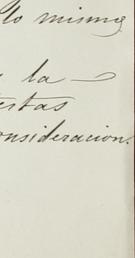 lo mismo
y la
estas
consideracion.